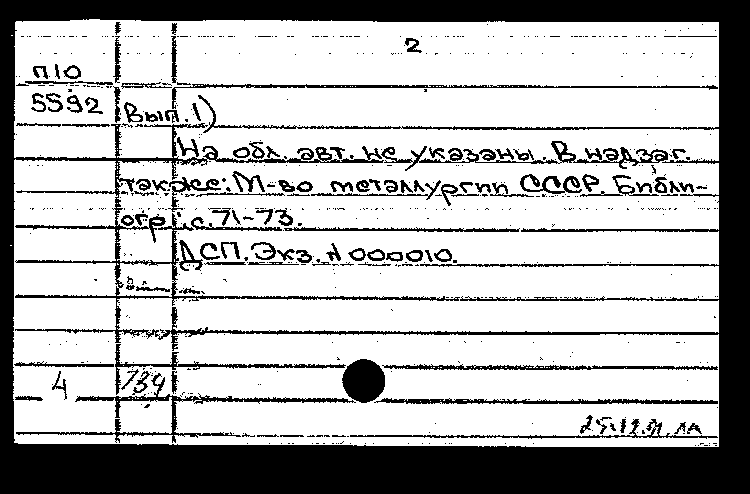 2
П10
5592 Вып. 1)
На обл. авт. не указаны. В надзаг.
также: М-во металлургии СССР. Библи-
огр.: с. 71-73.
ДСП. Экз. N 000010.
4 734
25.12.91.